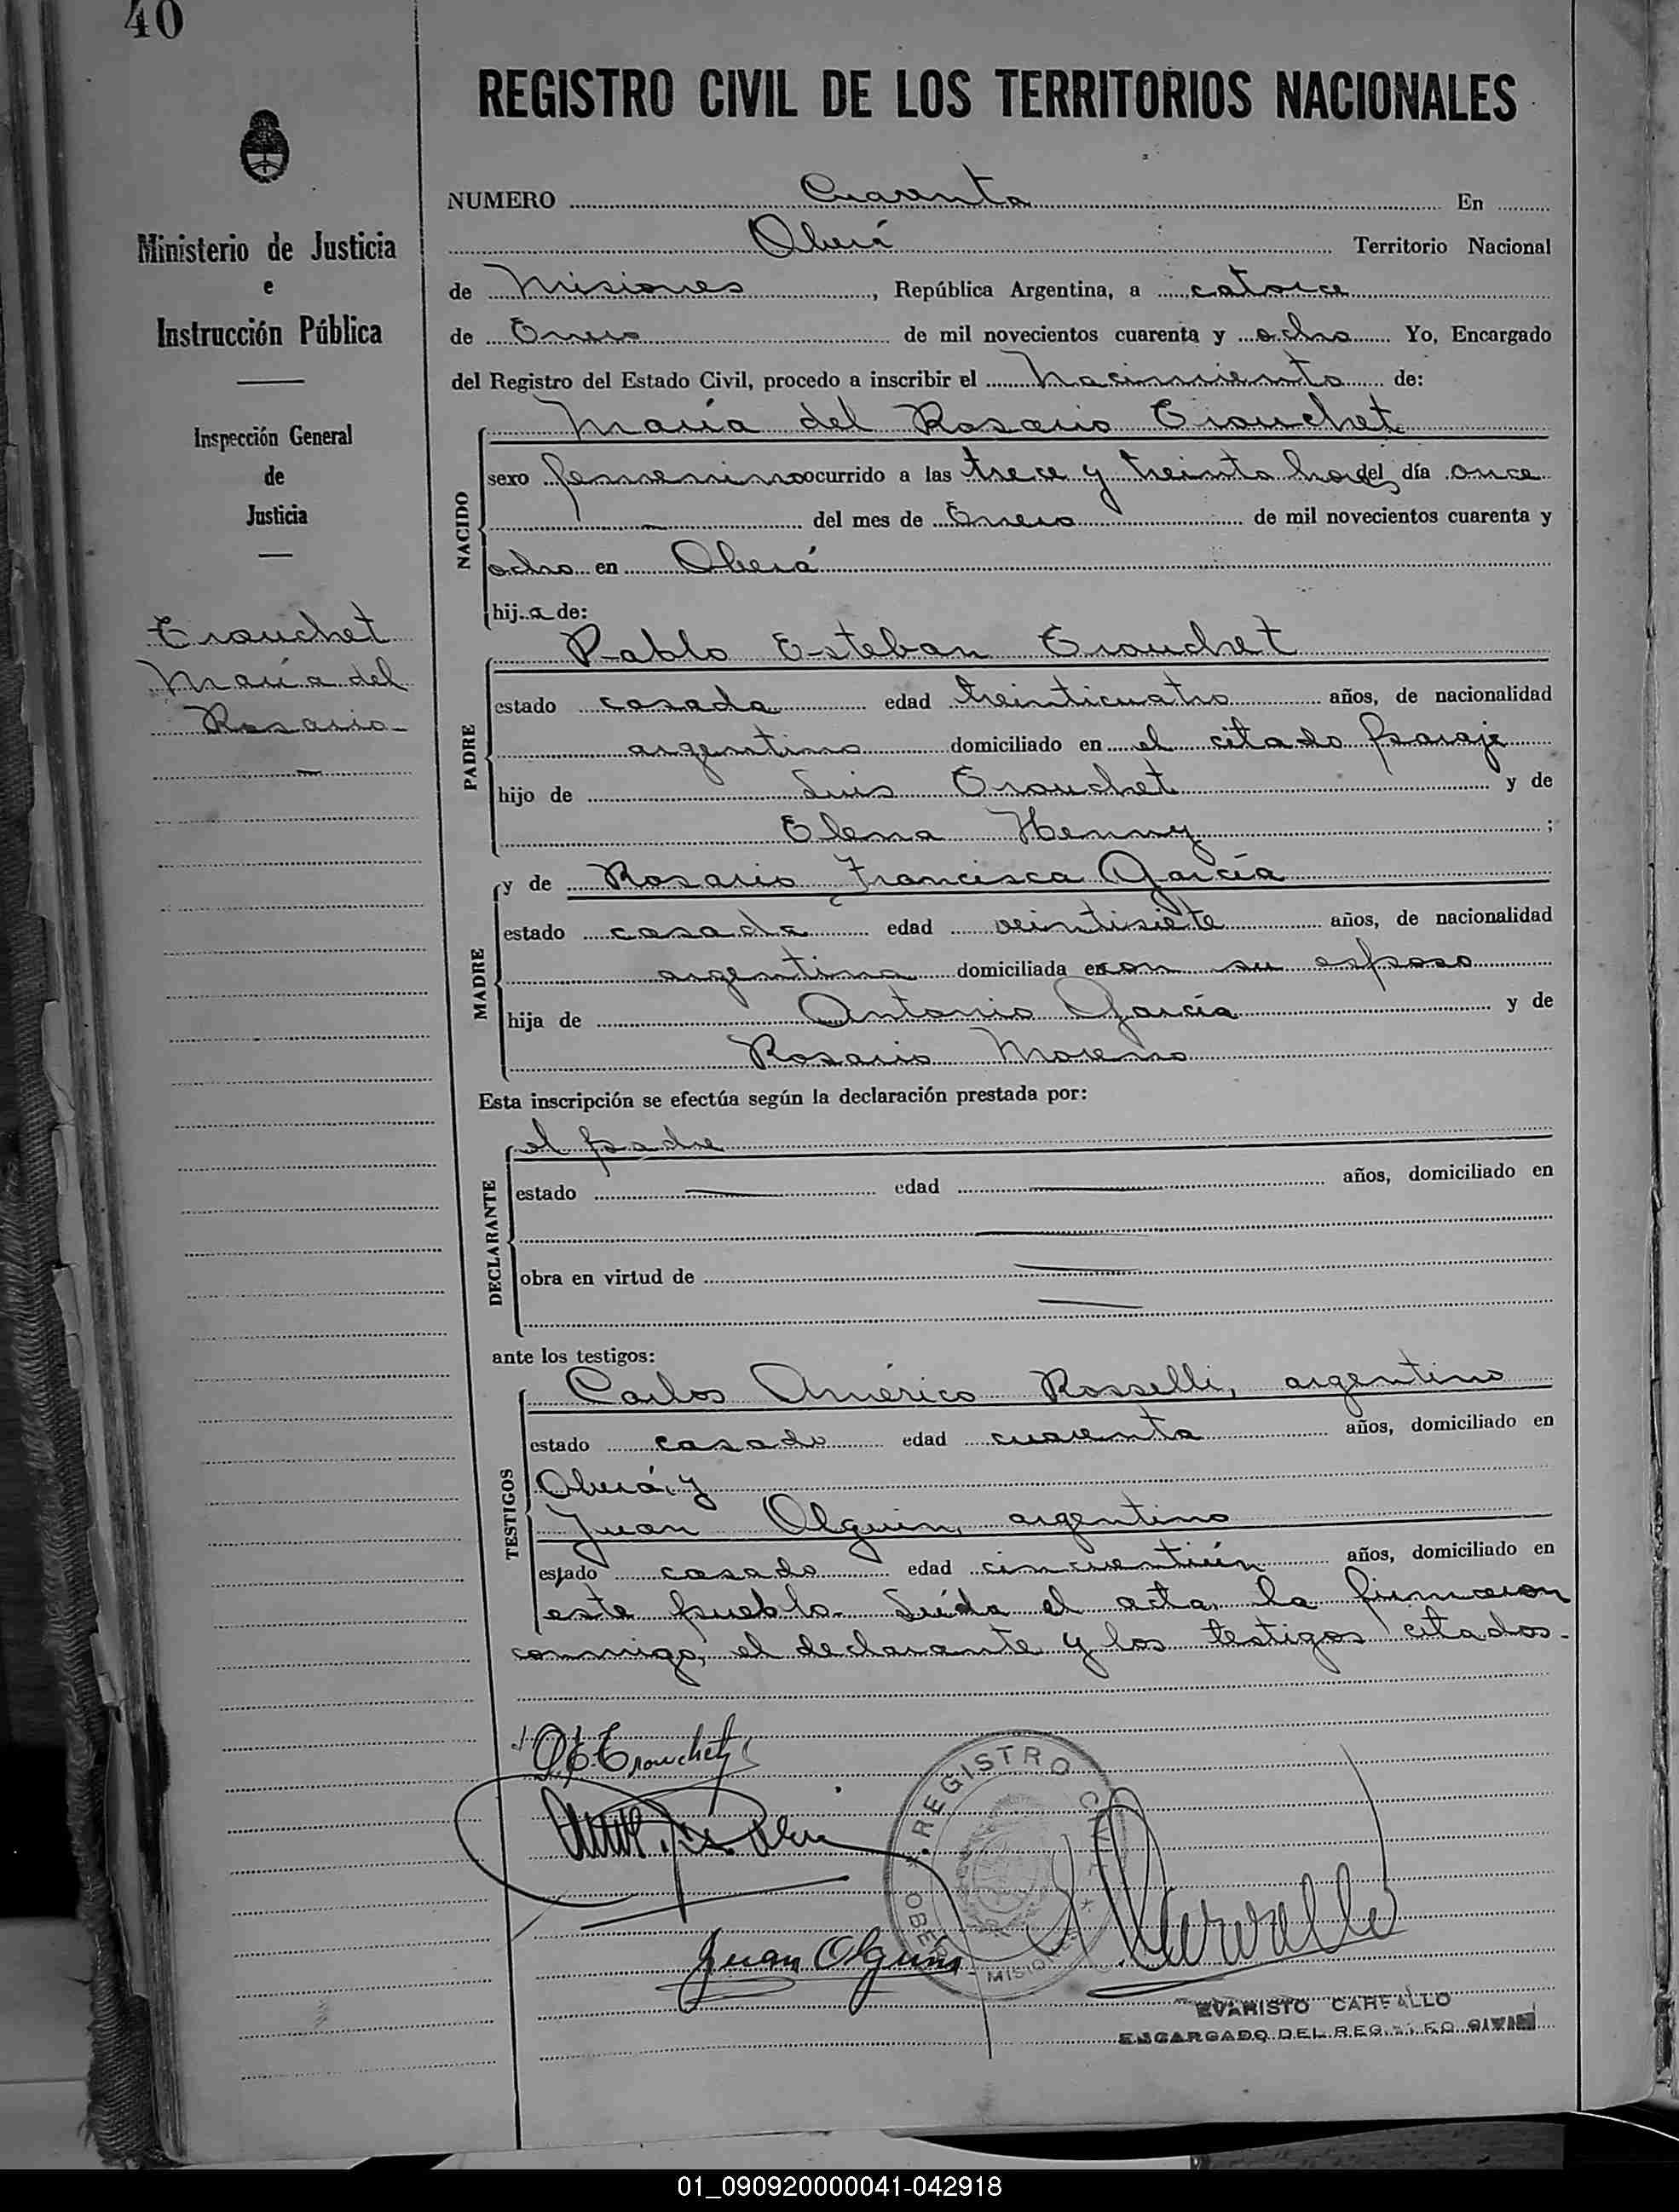 40
REGISTRO CIVIL DE LOS TERRITORIOS NACIONALES
Ministerio de Justicia
e
Instrucción Pública
Inspección General
de
Justicia
Crouchet
María del
Rosario
NUMERO Cuarenta En
Oberá Territorio Nacional
de Misiones, República Argentina, a catorce
de Enero de mil novecientos cuarenta y ocho Yo, Encargado
del Registro del Estado Civil, procedo a inscribir el Nacimiento de:
NACIDO
María del Rosario Crouchet
sexo femenino ocurrido a las trece y treinta horas del día once
del mes de Enero de mil novecientos cuarenta y
ocho en Oberá
hija de:
PADRE
Pablo Esteban Crouchet
estado casado edad treinticuatro años, de nacionalidad
argentino domiciliado en el citado paraje
hijo de Luis Crouchet y de
Elena Henny ;
MADRE
y de Rosario Francisca García
estado casada edad veintisiete años, de nacionalidad
argentina domiciliada con su esposo
hija de Antonio García y de
Rosario Moreno
Esta inscripción se efectúa según la declaración prestada por:
DECLARANTE
el padre
estado edad años, domiciliado en
obra en virtud de
ante los testigos:
TESTIGOS
Carlos Américo Rosselli, argentino
estado casado edad cuarenta años, domiciliado en
Oberá, y
Juan Olguin, argentino
estado casado edad cincuentiún años, domiciliado en
este pueblo. Leída el acta, la firmaron
conmigo, el declarante y los testigos citados.-
P. E. Crouchet
REGISTRO CIVIL
OBERÁ - MISIONES
Juan Olguin
Carvallo
EVARISTO CARVALLO
ENCARGADO DEL REGISTRO CIVIL
01_090920000041-042918